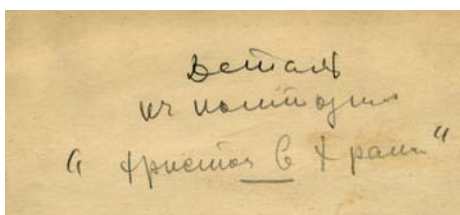 Деталь
к композиции
"Христос в Храме"